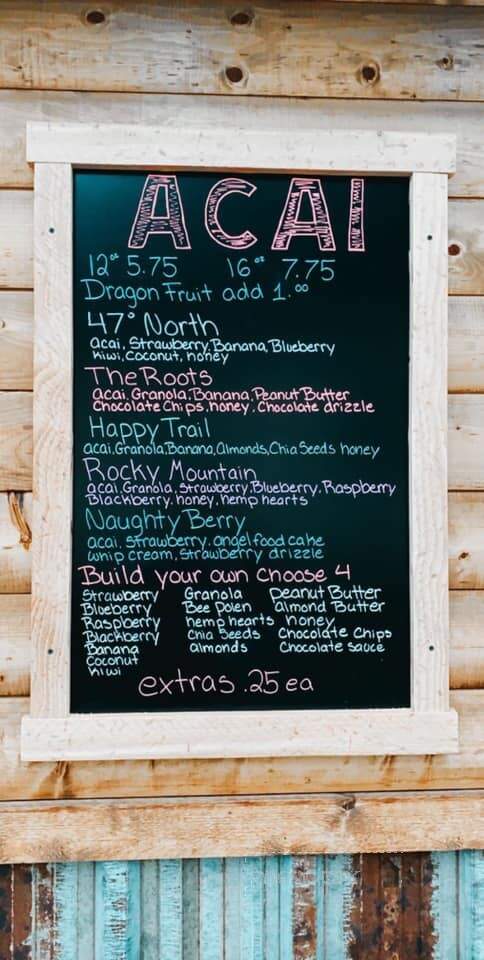 ACAI
12oz 5.75 16oz 7.75
Dragon Fruit add 1.00
47° North
acai, Strawberry, Banana, Blueberry
Kiwi, Coconut, honey
The Roots
acai, Granola, Banana, Peanut Butter
Chocolate Chips, honey, Chocolate drizzle
Happy Trail
acai, Granola, Banana, Almonds, Chia Seeds honey
Rocky Mountain
acai, Granola, Strawberry, Blueberry, Raspberry
Blackberry, honey, hemp hearts
Naughty Berry
acai, Strawberry, angel food cake
whip cream, Strawberry drizzle
Build your own Choose 4
Strawberry Granola Peanut Butter
Blueberry Bee Polen almond Butter
Raspberry hemp hearts honey
Blackberry Chia Seeds Chocolate Chips
Banana almonds Chocolate Sauce
Coconut
Kiwi
extras .25 ea